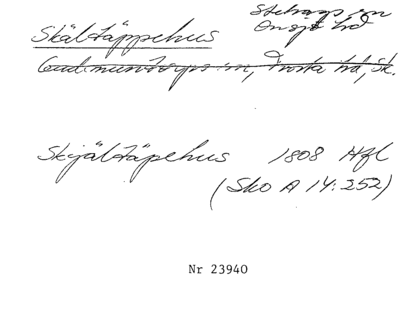 Skältäppehus
Stehags sn
Onsjö hd
Gudmuntorps sn, Frosta hd, Sk.
Skjältäpehus 1808 Hfl
(Sko A 14:252)
Nr 23940